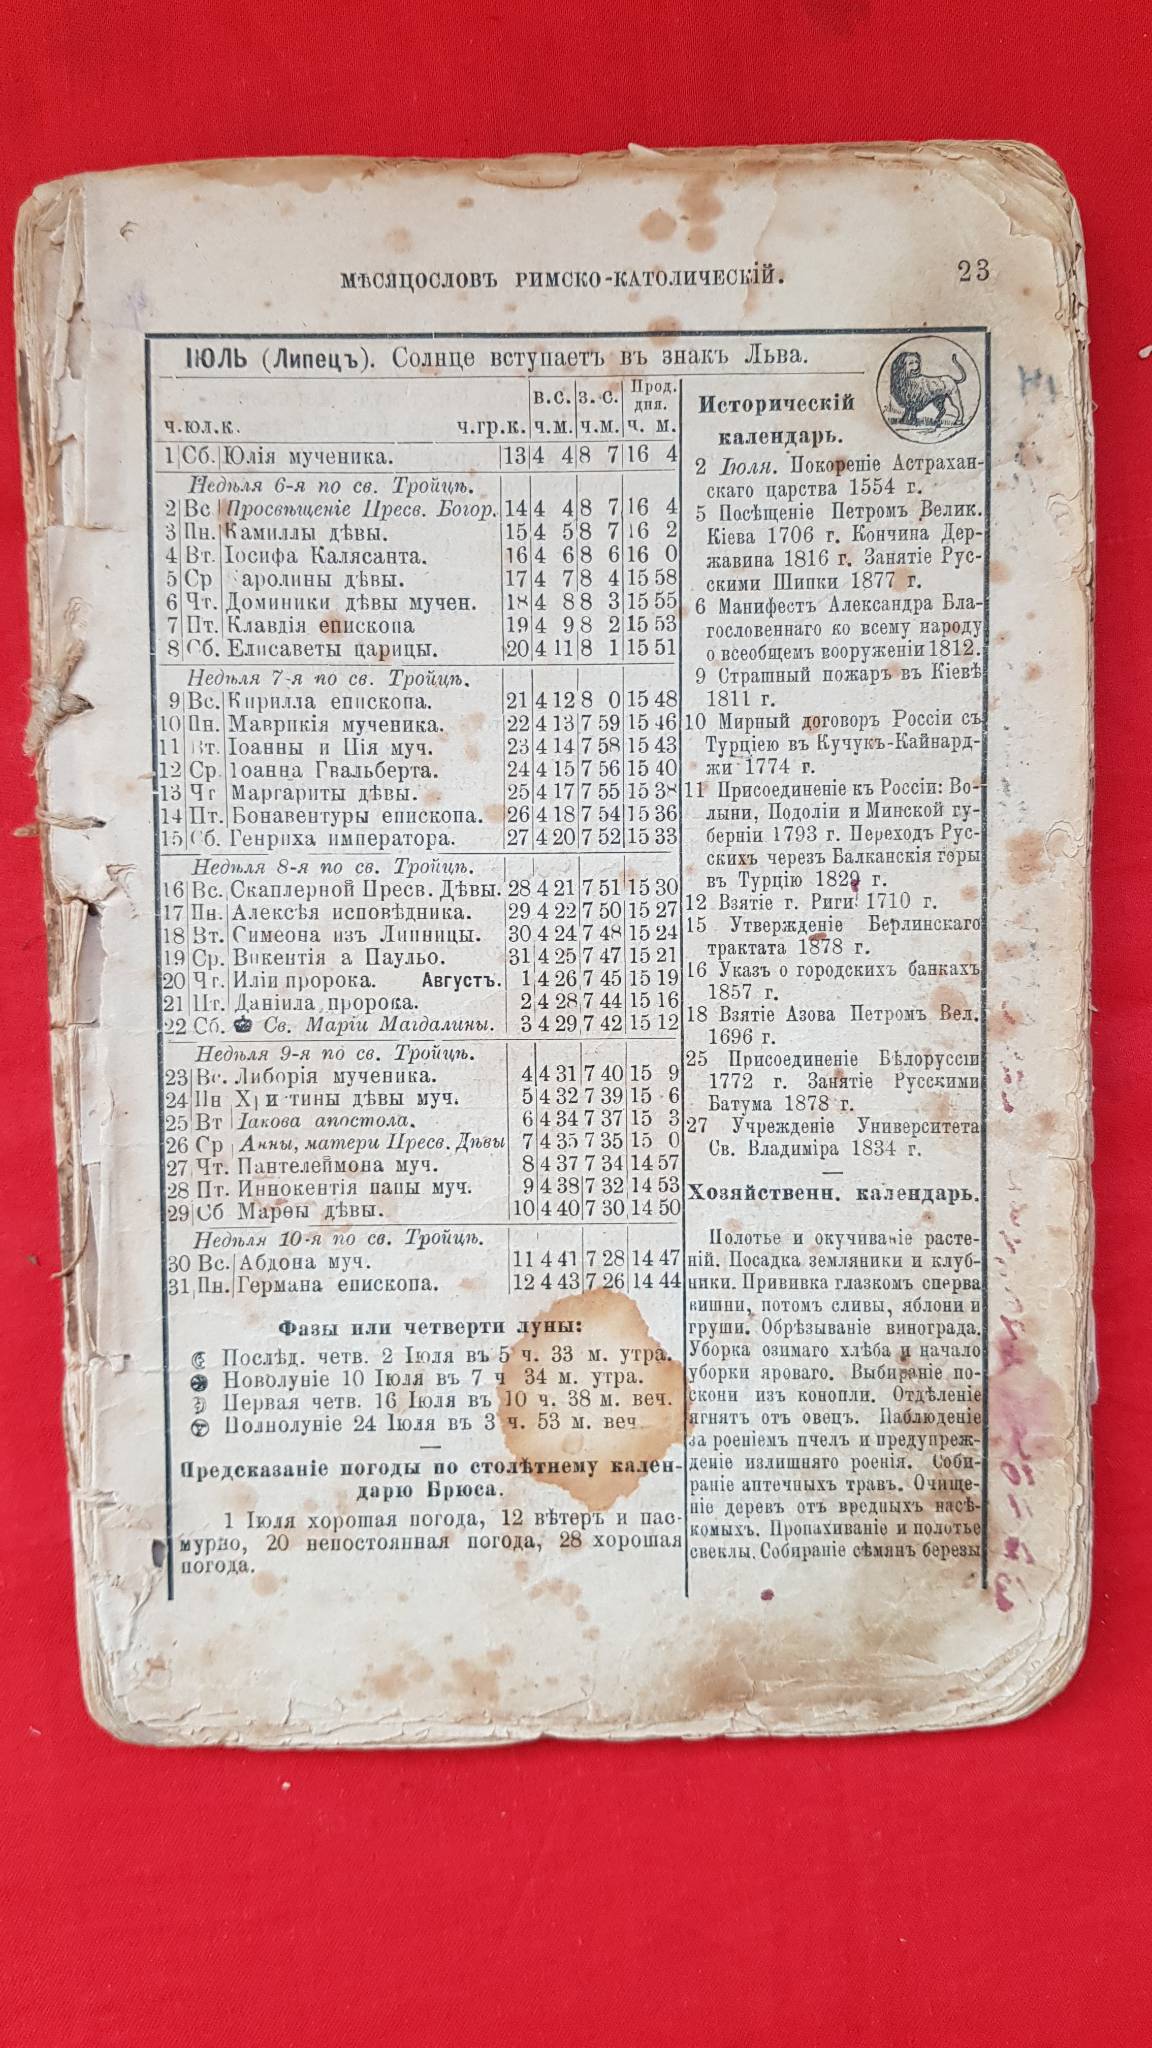 МѢСЯЦОСЛОВЪ РИМСКО-КАТОЛИЧЕСКІЙ.
23
ІЮЛЬ (Липецъ). Солнце вступаетъ въ знакъ Льва.
В.С. З.С. Прод. дня.
ч.юл.к. ч.гр.к. ч.м. ч.м. ч. м.
1 Сб. Юлія мученика. 13 4 4 8 7 16 4
Недѣля 6-я по св. Тройцѣ.
2 Вс Просвѣщеніе Пресв. Богор. 14 4 4 8 7 16 4
3 Пн. Камиллы дѣвы. 15 4 5 8 7 16 2
4 Вт. Іосифа Калясанта. 16 4 6 8 6 16 0
5 Ср аролины дѣвы. 17 4 7 8 4 15 58
6 Чт. Доминики дѣвы мучен. 18 4 8 8 3 15 55
7 Пт. Клавдія епископа 19 4 9 8 2 15 53
8 Сб. Елисаветы царицы. 20 4 11 8 1 15 51
Недѣля 7-я по св. Тройцѣ.
9 Вс. Кирилла епископа. 21 4 12 8 0 15 48
10 Пн. Маврикія мученика. 22 4 13 7 59 15 46
11 Вт. Іоанны и Пія муч. 23 4 14 7 58 15 43
12 Ср. Іоанна Гвальберта. 24 4 15 7 56 15 40
13 Чг Маргариты дѣвы. 25 4 17 7 55 15 38
14 Пт. Бонавентуры епископа. 26 4 18 7 54 15 36
15 Сб. Генриха императора. 27 4 20 7 52 15 33
Недѣля 8-я по св. Тройцѣ.
16 Вс. Скаплерной Пресв. Дѣвы. 28 4 21 7 51 15 30
17 Пн. Алексѣя исповѣдника. 29 4 22 7 50 15 27
18 Вт. Симеона изъ Липницы. 30 4 24 7 48 15 24
19 Ср. Викентія а Паульо. 31 4 25 7 47 15 21
20 Чг. Иліи пророка. Августъ. 1 4 26 7 45 15 19
21 Пт. Даніила пророка. 2 4 28 7 44 15 16
22 Сб. Св. Маріи Магдалины. 3 4 29 7 42 15 12
Недѣля 9-я по св. Тройцѣ.
23 Вс. Либорія мученика. 4 4 31 7 40 15 9
24 Пн Хри тины дѣвы муч. 5 4 32 7 39 15 6
25 Вт Іакова апостола. 6 4 34 7 37 15 3
26 Ср Анны, матери Пресв. Дѣвы 7 4 35 7 35 15 0
27 Чт. Пантелеймона муч. 8 4 37 7 34 14 57
28 Пт. Иннокентія папы муч. 9 4 38 7 32 14 53
29 Сб Марѳы дѣвы. 10 4 40 7 30 14 50
Недѣля 10-я по св. Тройцѣ.
30 Вс. Абдона муч. 11 4 41 7 28 14 47
31 Пн. Германа епископа. 12 4 43 7 26 14 44
Фазы или четверти луны:
Послѣд. четв. 2 Іюля въ 5 ч. 33 м. утра.
Новолуніе 10 Іюля въ 7 ч 34 м. утра.
Первая четв. 16 Іюля въ 10 ч. 38 м. веч.
Полнолуніе 24 Іюля въ 3 ч. 53 м. веч
Предсказаніе погоды по столѣтнему кален-
дарю Брюса.
1 Іюля хорошая погода, 12 вѣтеръ и пас-
мурно, 20 непостоянная погода, 28 хорошая
погода.
Историческій
календарь.
2 Іюля. Покореніе Астрахан-
скаго царства 1554 г.
5 Посѣщеніе Петромъ Велик.
Кіева 1706 г. Кончина Дер-
жавина 1816 г. Занятіе Рус-
скими Шипки 1877 г.
6 Манифестъ Александра Бла-
гословеннаго ко всему народу
о всеобщемъ вооруженіи 1812.
9 Страшный пожаръ въ Кіевѣ
1811 г.
10 Мирный договоръ Россіи съ
Турціею въ Кучукъ-Кайнард-
жи 1774 г.
11 Присоединеніе къ Россіи: Во-
лыни, Подоліи и Минской гу-
берніи 1793 г. Переходъ Рус-
скихъ черезъ Балканскія горы
въ Турцію 1829 г.
12 Взятіе г. Риги 1710 г.
15 Утвержденіе Берлинскаго
трактата 1878 г.
16 Указъ о городскихъ банкахъ
1857 г.
18 Взятіе Азова Петромъ Вел.
1696 г.
25 Присоединеніе Бѣлоруссіи
1772 г. Занятіе Русскими
Батума 1878 г.
27 Учрежденіе Университета
Св. Владиміра 1834 г.
Хозяйственн. календарь.
Полотье и окучиваніе расте-
ній. Посадка земляники и клуб-
ники. Прививка глазкомъ сперва
вишни, потомъ сливы, яблони и
груши. Обрѣзываніе винограда.
Уборка озимаго хлѣба и начало
уборки яроваго. Выбираніе по-
скони изъ конопли. Отдѣленіе
ягнятъ отъ овецъ. Наблюденіе
за роеніемъ пчелъ и предупреж-
деніе излишняго роенія. Соби-
раніе аптечныхъ травъ. Очище-
ніе деревъ отъ вредныхъ насѣ-
комыхъ. Пропахиваніе и полотье
свеклы. Собираніе сѣмянъ березы